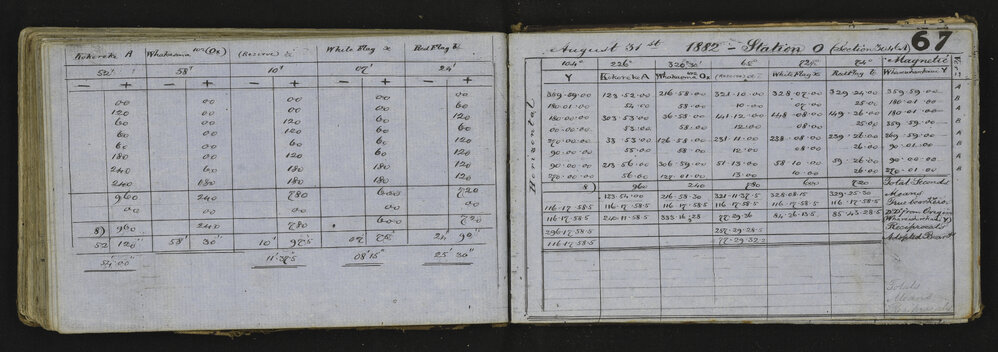 Kokoreke A Whakaama Ox (Reserve) White Flag x Red Flag
52' 58' 10' 07' 24'
− + − + − + − + − +
00 00 00 00 00
120 00 00 00 60
60 00 00 00 120
60 00 120 60 60
60 00 120 60 120
180 00 120 60 120
240 60 180 180 120
240 180 180 180 120
960 240 780 600 720
00 00 00 00 00
8) 960 240 780 600 720
52' 120" 58' 30" 10' 97.5 07' 75" 24' 90"
54' 00" 11' 37.5 08' 15" 25' 30"
67
August 31st 1882 – Station O (Section 30
104° 226° 326° 30' 65° 72° Magnetic
Y Kokoreke A Whakaama Ox (Reserve) White Flag x Red Flag
Horizontal
359.59.00 123.52.00 216.58.00 321.10.00 328.07.00 329.24.00 359.59.00 A
180.01.00 54.00 58.00 10.00 07.00 25.00 180.01.00 B
180.00.00 303.53.00 36.58.00 141.12.00 148.08.00 149.26.00 180.01.00 A
00.00.00 53.00 58.00 12.00 08.00 25.00 359.59.00 B
270.00.00 33.53.00 126.58.00 231.11.00 238.08.00 239.26.00 269.59.00 A
90.00.00 55.00 58.00 12.00 08.00 26.00 90.00.00 B
90.00.00 213.56.00 306.59.00 51.13.00 58.10.00 59.26.00 90.00.00 A
270.00.00 56.00 127.01.00 13.00 10.00 26.00 270.01.00 B
8) 960 240 780 600 720 Total Seconds
123.54.00 216.58.30 321.11.37.5 328.08.15 329.25.30 Means
116.17.58.5 116.17.58.5 116.17.58.5 116.17.58.5 116.17.58.5 116.17.58.5
116.17.58.5 240.11.58.5 333.16.28 77.29.36 84.26.13.5 85.43.28.5
296.17.58.5 257.29.28.5 Reciprocals
116.17.58.5 77.29.32.2 Adopted
Totals
Means